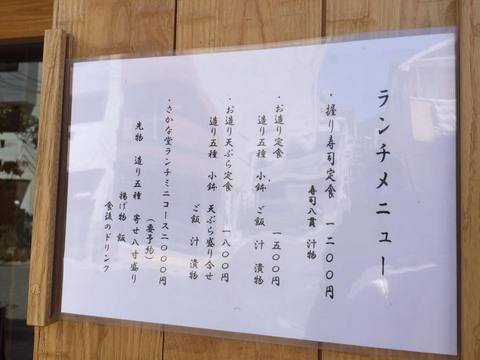 ランチメニュー
・握り寿司定食 一二〇〇円
寿司八貫 汁物
・お造り定食 一五〇〇円
造り五種 小鉢 ご飯 汁 漬物
・お造り天ぷら定食 一八〇〇円
造り五種 小鉢 天ぷら盛り合せ
ご飯 汁 漬物
・さかな堂ランチミニコース二〇〇〇円
(要予約)
先物 造り五種 寄せ八寸盛り
揚げ物 飯
食後のドリンク